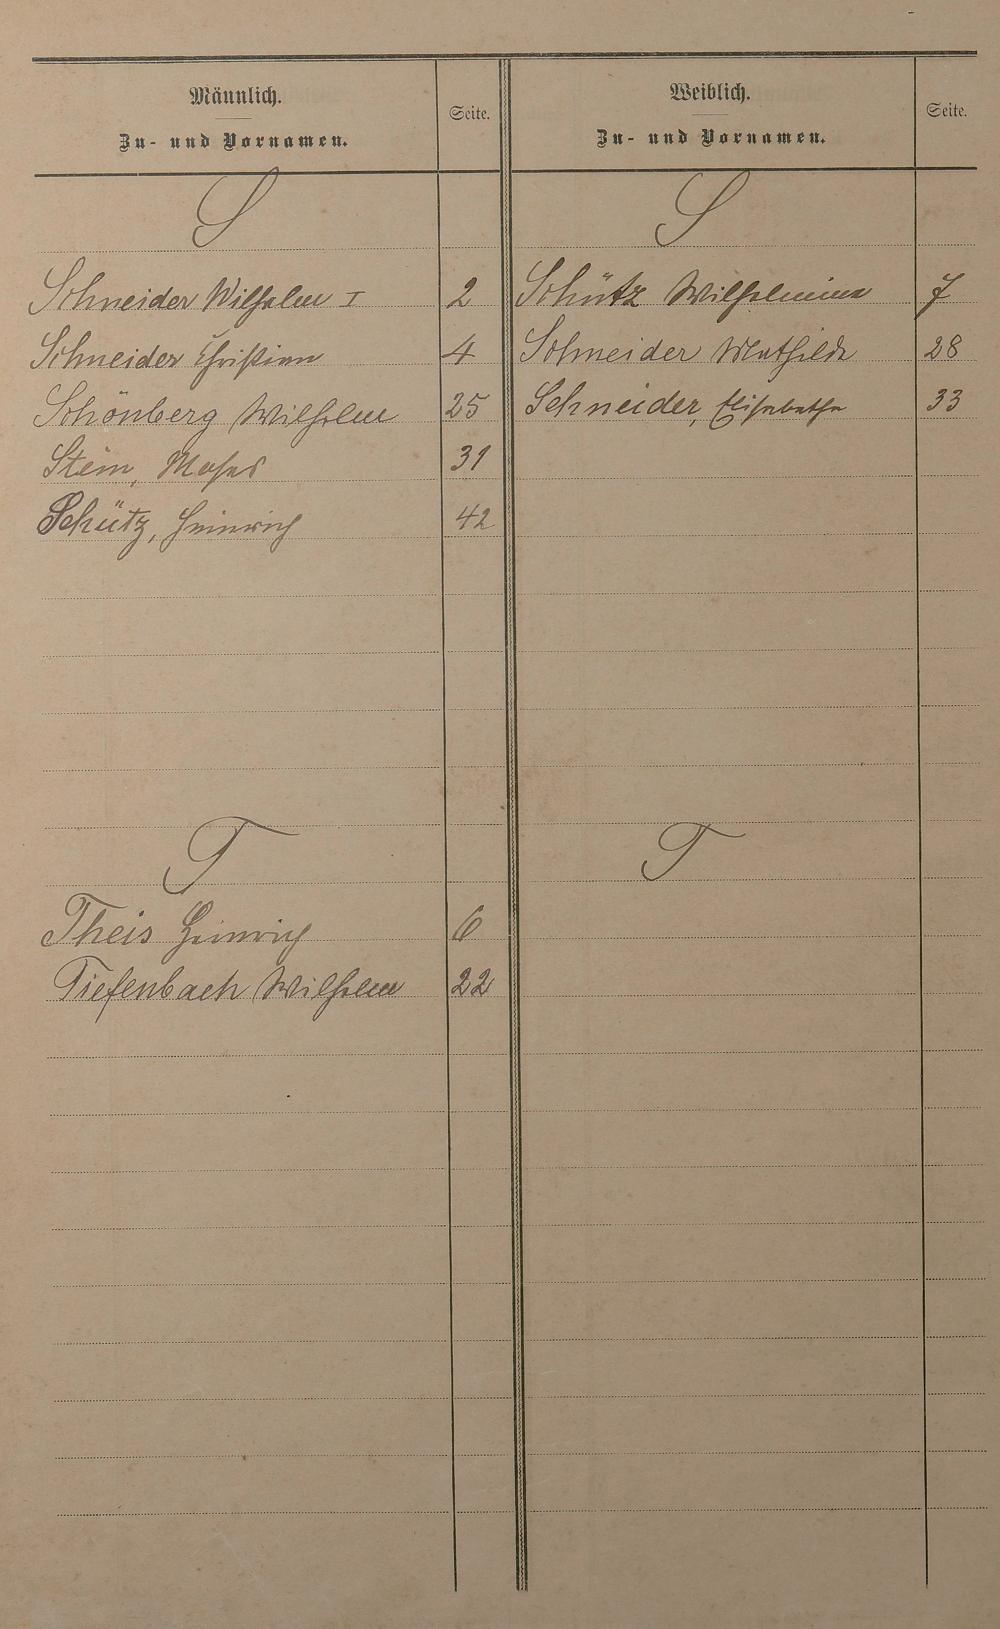 Männlich.
Zu- und Vornamen.
Seite.
Weiblich.
Zu- und Vornamen.
Seite.
S
S
Schneider Wilhelm I 2
Schütz Wilhelmine 7
Schneider Christian 4
Schneider Mathilde 28
Schönberg Wilhelm 25
Schneider, Elisabetha 33
Stein, Moses 31
Schütz, Heinrich 42
T
T
Theis Heinrich 6
Tiefenbach Wilhelm 22